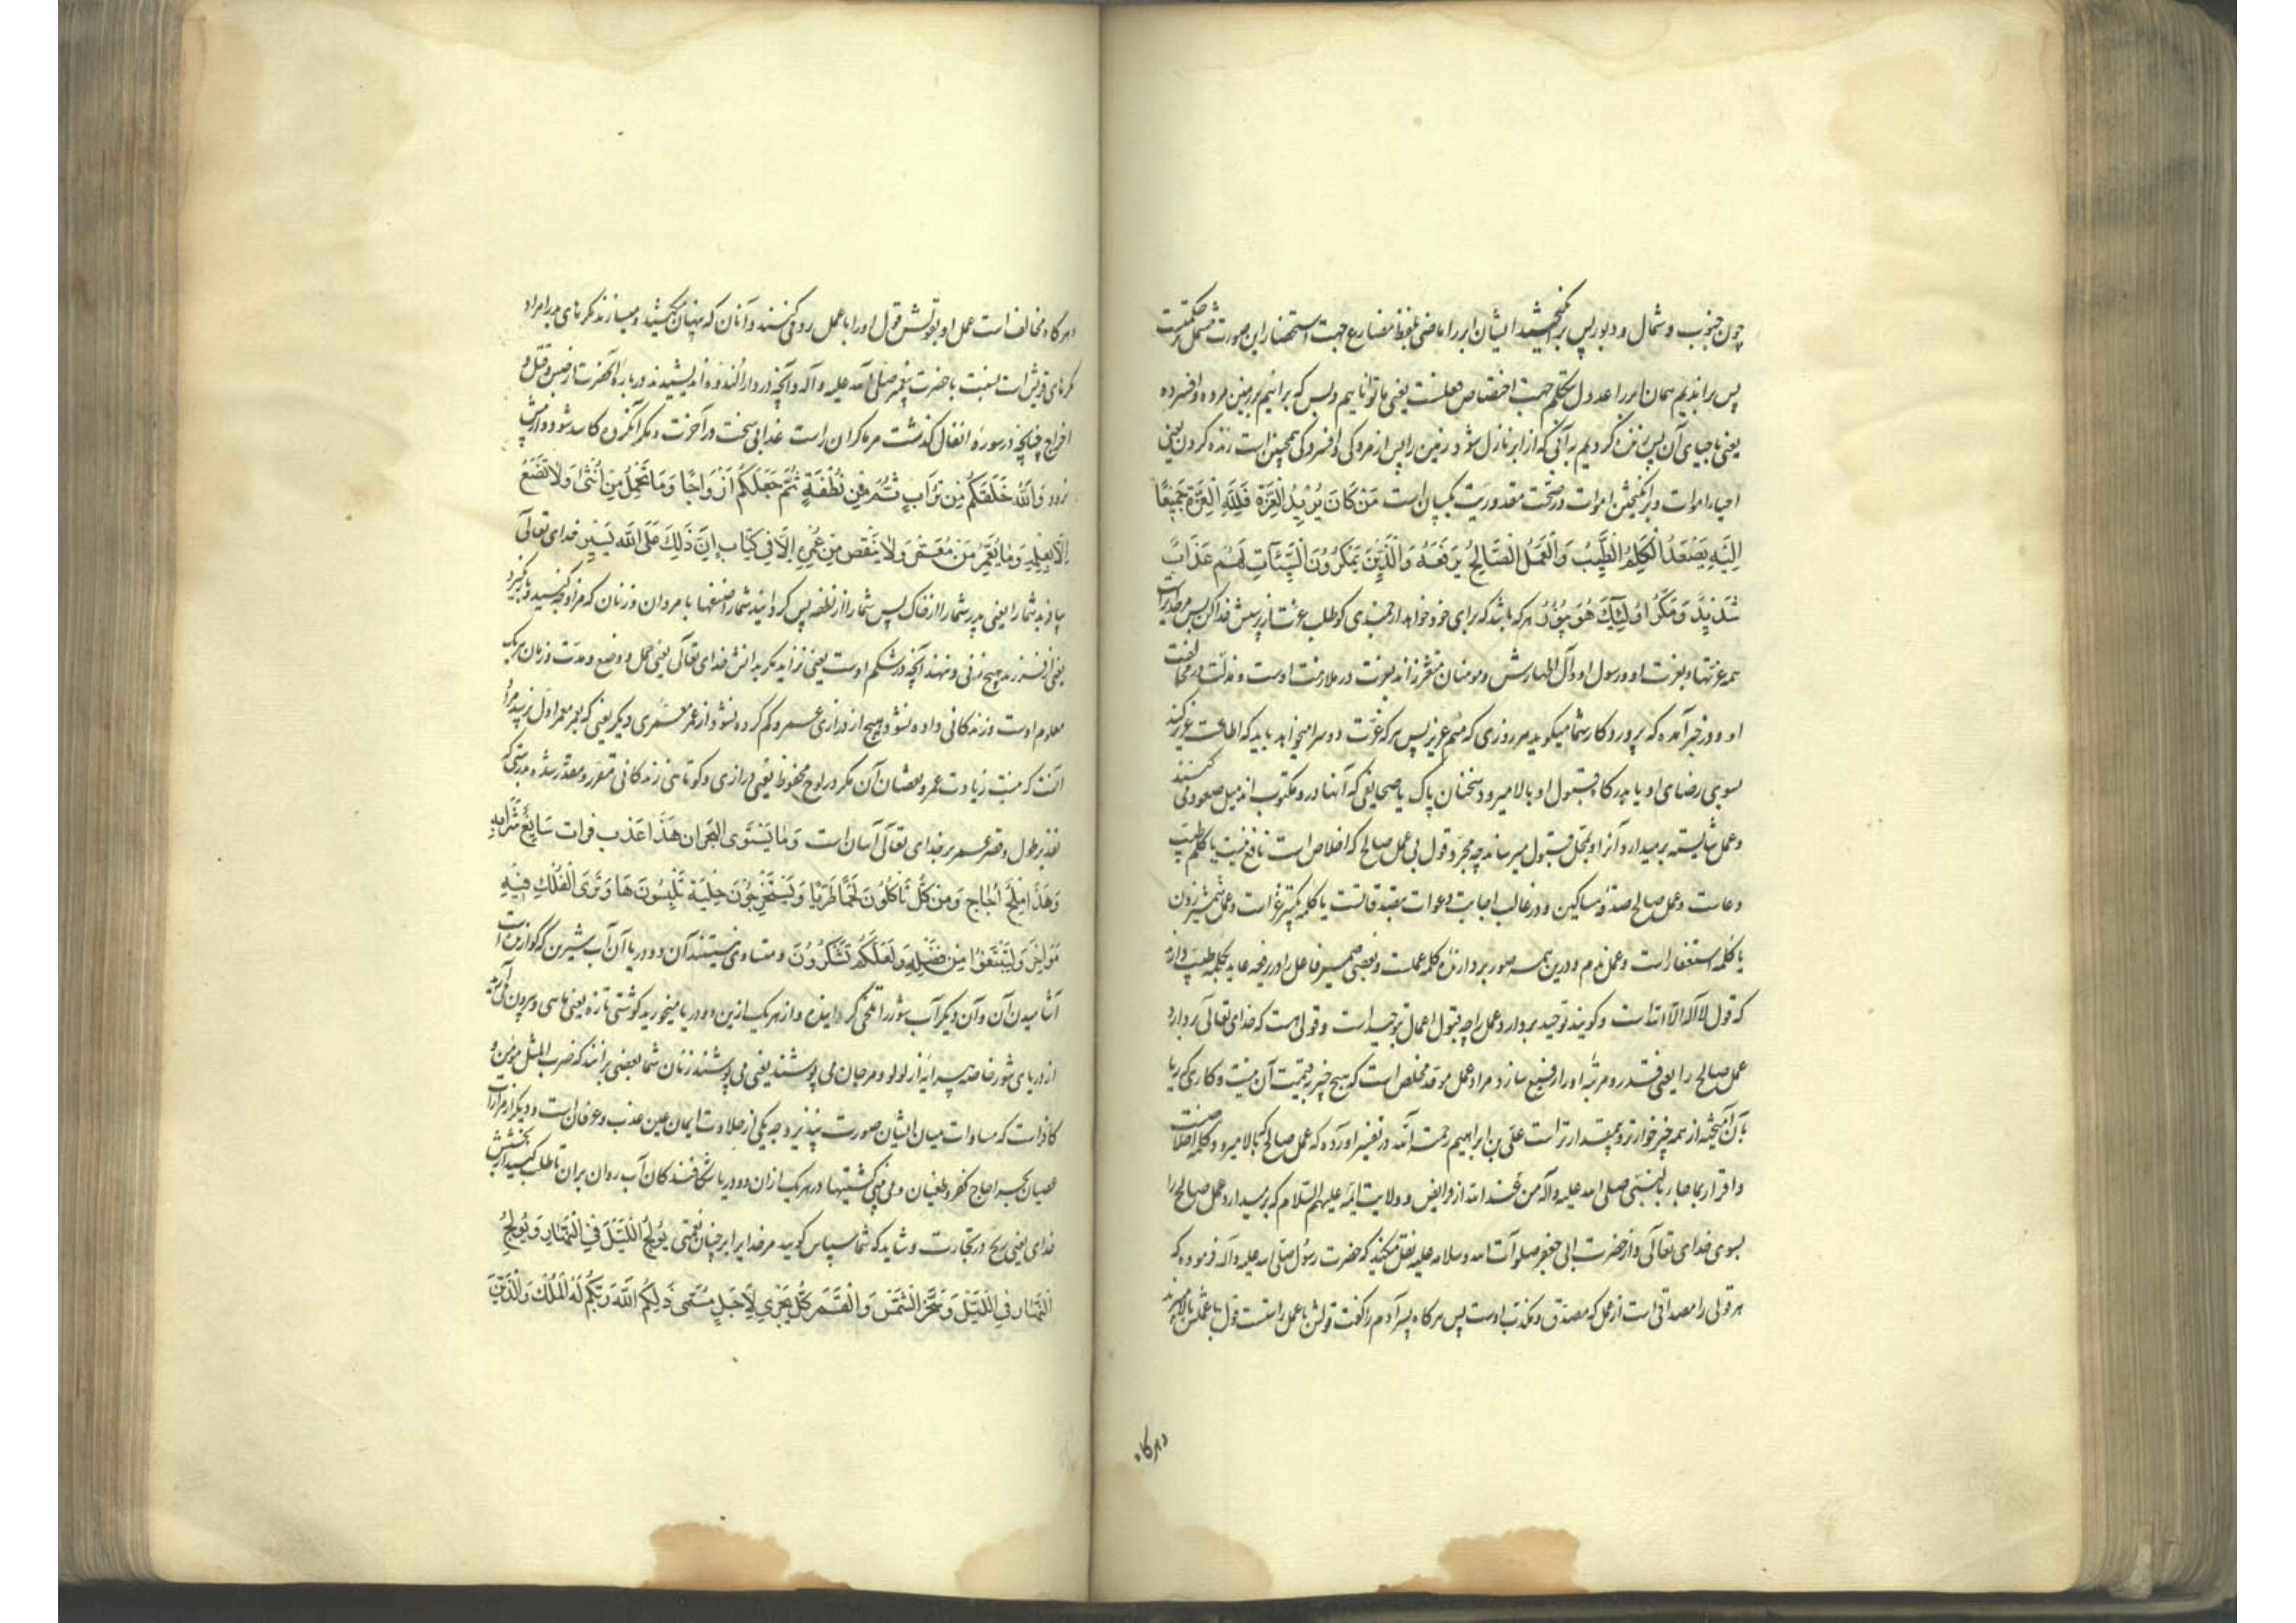 چون جنوب و شمال و دبور پس برمی‌انگیختند ایشان ابر را ماضی بلفظ مضارع جهت استحضار این صورت مشتمل بر حکمتست
پس براندیم همان ابر را عدول بتکلم جهت اختصاص فعلست یعنی ما توانائیم و بس که برانیم بر زمین مرده و افسرده
یعنی باحیای آن پس زنده کردیم به آبی که از ابر نازل شود زمین را پس از مردگی و افسردگی همچنین است زنده کردن یعنی
احیاء اموات و برانگیختن اموات در صحت مقدوریت یکسان است مَنْ كَانَ يُرِيدُ الْعِزَّةَ فَلِلَّهِ الْعِزَّةُ جَمِيعًا
إِلَيْهِ يَصْعَدُ الْكَلِمُ الطَّيِّبُ وَالْعَمَلُ الصَّالِحُ يَرْفَعُهُ وَالَّذِينَ يَمْكُرُونَ السَّيِّئَاتِ لَهُمْ عَذَابٌ
شَدِيدٌ وَمَكْرُ أُولَئِكَ هُوَ يَبُورُ هر که باشد که برای خود خواهد ارجمندی کو طلب عزت از پیش خدا کن پس مر خدایراست
همه عزتها و بعزت او و رسول او و آل اطهارش و مومنان متعززاند بعزت در ملازمت اوست و مذلت در مخالفت
او و در خبر آمده که پروردکار شما میکوید هر روزی که منم عزیز پس هر که عزت دو سرا میخواهد باید که اطاعت عزیز کند
بسوی رضای او یا بدرکاه قبول او بالا میرود سخنان پاک یا صحایفی که آنها درو مکتوب اند میل صعود می کنند
و عمل شایسته برمیدارد آنرا و بمحل قبول میرساند چه مجرد قول بی عمل صالح که اخلاص است نافع نیست یا کلم طیب
دعاست و عمل صالح صدقه مساکین و در غالب اجابت دعوات بتصدقاتست یا کلمه تکبیر غزاست و عمل شمشیر زدن
یا کلمه استغفار است و عمل ندم و درین همه صور بردارنده کلمه عملست و بعضی ضمیر فاعل را در یرفعه عاید بکلمه طیب دارند
که قول لا اله الا الله است و کویند توحید بردارد عمل را چه قبول اعمال بتوحید است و قولی هست که خدای تعالی بردارد
عمل صالح را یعنی قدر و مرتبه او را رفیع سازد مراد عمل موحد مخلص است که هیچ چیز بقیمت آن نیست و کاری که ریا
بآن آمیخته از همه چیز خوارتر و بیمقدارتر است علی بن ابراهیم رحمت الله در تفسیر آورده که عمل صالح که بالا میرود کلمه اخلاصست
و اقرار بما جاء به النبی صلی الله علیه و آله من عند الله از فرایض و ولایت ائمه علیهم السلام که برمیدارد عمل صالح را
بسوی خدای تعالی و از حضرت ابی جعفر صلوات الله و سلامه علیه نقل میکنند که حضرت رسول صلی الله علیه و آله فرموده که
هر قولی را مصداقی است از عمل که مصدق و مکذب اوست پس هر کاه پسر آدم را کفت قولش با عمل راست قول با عملش بالا میبرند
وهرکاه
وهرکاه مخالف است عمل او بقولش قول او را با عمل رد می کنند و آنان که پنهان میکنند و میسازند مکرهای بد را مراد
مکرهای قریش است نسبت با حضرت پیغمبر صلی الله علیه و آله و آنچه در دار الندوه اندیشیدند درباره آنحضرت از حبس و قتل و
اخراج چنانچه در سوره انفال کذشت مر ماکران راست عذابی سخت در آخرت و مکر آنکروه کاسد شود و از پیش
نرود وَاللَّهُ خَلَقَكُمْ مِنْ تُرَابٍ ثُمَّ مِنْ نُطْفَةٍ ثُمَّ جَعَلَكُمْ أَزْوَاجًا وَمَا تَحْمِلُ مِنْ أُنْثَى وَلَا تَضَعُ
إِلَّا بِعِلْمِهِ وَمَا يُعَمَّرُ مِنْ مُعَمَّرٍ وَلَا يُنْقَصُ مِنْ عُمُرِهِ إِلَّا فِي كِتَابٍ إِنَّ ذَلِكَ عَلَى اللَّهِ يَسِيرٌ خدای تعالی
بیافرید شما را یعنی پدر شما را از خاک پس شما را از نطفه پس کردانید شما را صنفها با مردان و زنان که مزاوجه کنید و بار نکیرد
یعنی از فرزند هیچ زنی و ننهد آنچه در شکم اوست یعنی نزاید مکر بدانش خدای تعالی یعنی حمل و وضع و مدت و زمان هر یک
معلوم اوست و زندکانی داده نشود هیچ از درازی عمر و کم کرده نشود از عمر معمری دیکر یعنی که بعمر معمر اول نرسد مراد
آنست که نیست زیادت عمر و نقصان آن مکر در لوح محفوظ یعنی درازی و کوتاهی زندکانی مقرر و مقدر شده بدرستی که
تقدیر طول و قصر عمر بر خدای تعالی آسان است وَمَا يَسْتَوِي الْبَحْرَانِ هَذَا عَذْبٌ فُرَاتٌ سَائِغٌ شَرَابُهُ
وَهَذَا مِلْحٌ أُجَاجٌ وَمِنْ كُلٍّ تَأْكُلُونَ لَحْمًا طَرِيًّا وَتَسْتَخْرِجُونَ حِلْيَةً تَلْبَسُونَهَا وَتَرَى الْفُلْكَ فِيهِ
مَوَاخِرَ وَلِتَبْتَغُوا مِنْ فَضْلِهِ وَلَعَلَّكُمْ تَشْكُرُونَ و متساوی نیستند آن دو دریا آن آب شیرین که کوارنده است
آشامیدن آن و آن دیکر آب شور را تلخی کرداینده و از هر یک ازین دو دریا میخورید کوشتی تازه یعنی ماهی و بیرون می آرید
از دریای شور خاصه پیرایه از لولو و مرجان می پوشند یعنی می پوشند زنان شما بعضی برانند که ضرب المثل مومن و
کافر است که مساوات میان ایشان صورت نپذیرد چه یکی از حلاوت ایمان عین عذب و عرفان است و دیکر از مرارت
عصیان بحر اجاج کفر و طغیان و می بینی کشتیها در هر یک ازان دو دریا شکافندکان آب روان بران تا طلب کنید از بخشش
خدای یعنی ربح در تجارت و شاید که شما سپاس کویید مر خدایرا بر چنان نعمتی يُولِجُ اللَّيْلَ فِي النَّهَارِ وَيُولِجُ
النَّهَارَ فِي اللَّيْلِ وَسَخَّرَ الشَّمْسَ وَالْقَمَرَ كُلٌّ يَجْرِي لِأَجَلٍ مُسَمًّى ذَلِكُمُ اللَّهُ رَبُّكُمْ لَهُ الْمُلْكُ وَالَّذِينَ